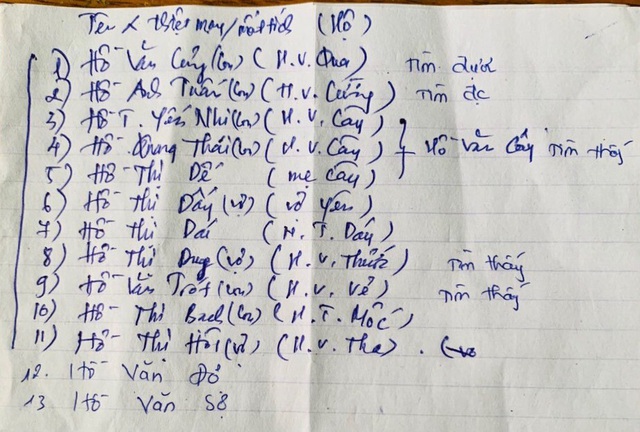 Tên thiệt mạng/mất tích (Hộ)
1) Hồ Văn Củng (con) (H.V. Qua) Tìm được
2) Hồ Anh Tuấn (con) (H.V. Cường) Tìm đc
3) Hồ T. Yến Nhi (con) (H.V. Cây)
4) Hồ Quang Thái (con) (H.V. Cây) } Hồ Văn Cây Tìm thấy
5) Hồ Thị Dế (mẹ Cây)
6) Hồ Thị Dấy (vợ) (vợ Yên)
7) Hồ Thị Dai (H.T. Dấy)
8) Hồ Thị (vợ) (H.V. Thiết) Tìm thấy
9) Hồ Văn Trót (con) (H.V. Vẻ) Tìm thấy
10) Hồ Thị Bach (con) (H.T. Mốc)
11) Hồ Thị Hối (vợ) (H.V. Tha).
12. Hồ Văn Đỏ
13 Hồ Văn Sơ